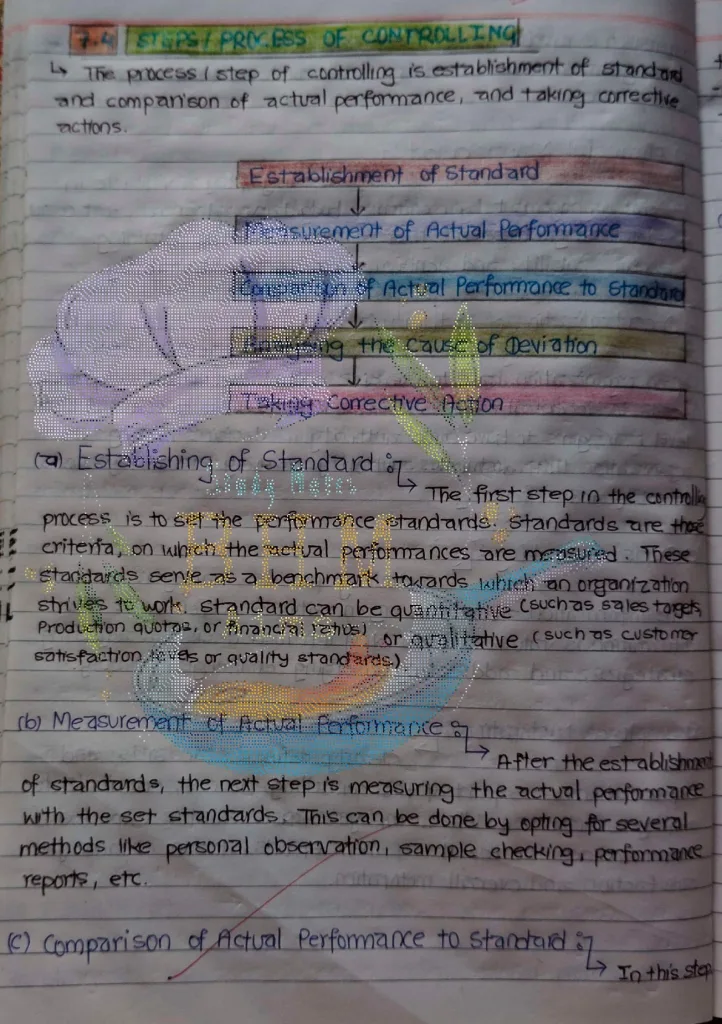 7.4 STEPS / PROCESS OF CONTROLLING
↳ The process / step of controlling is establishment of standard
and comparison of actual performance, and taking corrective
actions.
Establishment of Standard
Measurement of Actual Performance
Comparison of Actual Performance to Standard
Analysing the Cause of Deviation
Taking Corrective Action
(a) Establishing of Standard :-
↳ The first step in the controlling
process is to set the performance standards. Standards are those
criteria, on which the actual performances are measured. These
standards serve as a benchmark towards which an organization
strives to work. Standard can be quantitative (such as sales targets,
Production quotas, or financial ratios) or qualitative (such as customer
satisfaction levels or quality standards.)
BHM
(b) Measurement of Actual Performance :-
↳ After the establishment
of standards, the next step is measuring the actual performance
with the set standards. This can be done by opting for several
methods like personal observation, sample checking, performance
reports, etc.
(c) Comparison of Actual Performance to Standard :-
↳ In this step